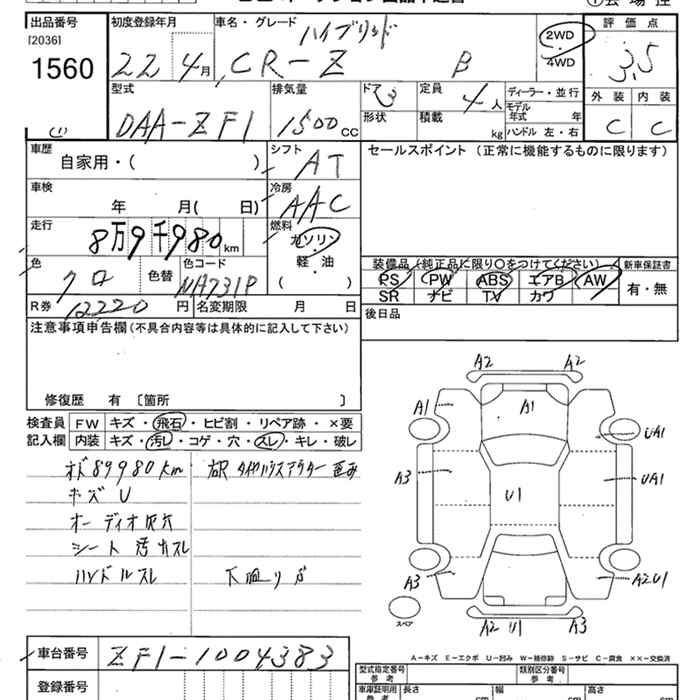 出品番号 初度登録年月 車名・グレード ハイブリッド 2WD 評価点
[2036] 4WD
1560 22年 4月 CR-Z B 3.5
型式 排気量 ドア 3 定員 4人 ディーラー・並行 外装 内装
DAA-ZF1 1500cc 形状 積載 kg モデル年式 年 C C
ハンドル 左・右
車歴 シフト セールスポイント (正常に機能するものに限ります)
自家用・( ) AT
車検 冷房
年 月( 日) AAC
走行 燃料
8万9千980km ガソリン
軽・油
( )
色 色替 色コード 装備品 (純正品に限り〇をつけてください) 新車保証書
クロ NH731P PS PW ABS エアB AW 有・無
SR ナビ TV カワ
R券 12220円 名変期限 月 日 後日品
注意事項申告欄(不具合内容等は具体的に記入して下さい)
修復歴 有 〔箇所 〕
検査員 FW キズ・飛石・ヒビ割・リペア跡・×要
記入欄 内装 キズ・汚レ・コゲ・穴・スレ・キレ・破レ
89980km
キズU
オーディオ
シート 汚れスレ
ハンドルスレ
A2 A2
A1 A1 UA1
A3 U1 UA1
A3 A2U1
スペア
A2 U1 A3
車台番号 ZF1-1004383
A-キズ E-エクボ U-凹み W-補修跡 S-サビ C-腐食 ××-交換済
登録番号 型式指定番号 参考 類別区分番号 参考
車庫証明用 参考 長さ 幅 高さ